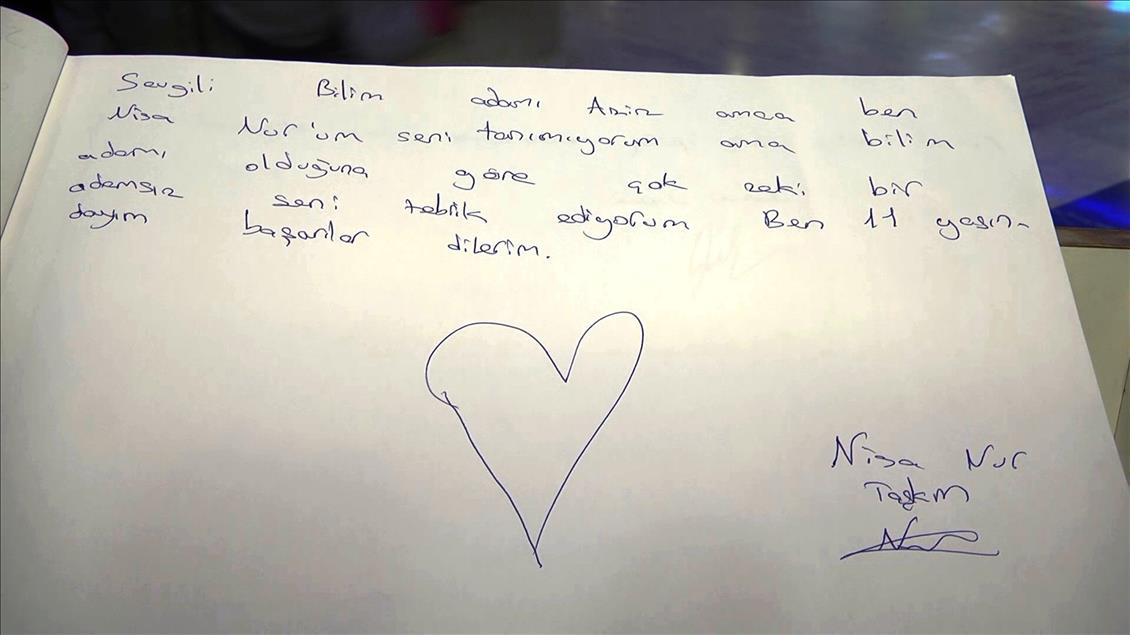 Sevgili Bilim adamı Aziz amca ben
Nisa Nur'um seni tanımıyorum ama bilim
adamı olduğuna göre çok zeki bir
adamsız seni tebrik ediyorum Ben 11 yaşın-
dayım başarılar dilerim.
Nisa Nur
Taşkın